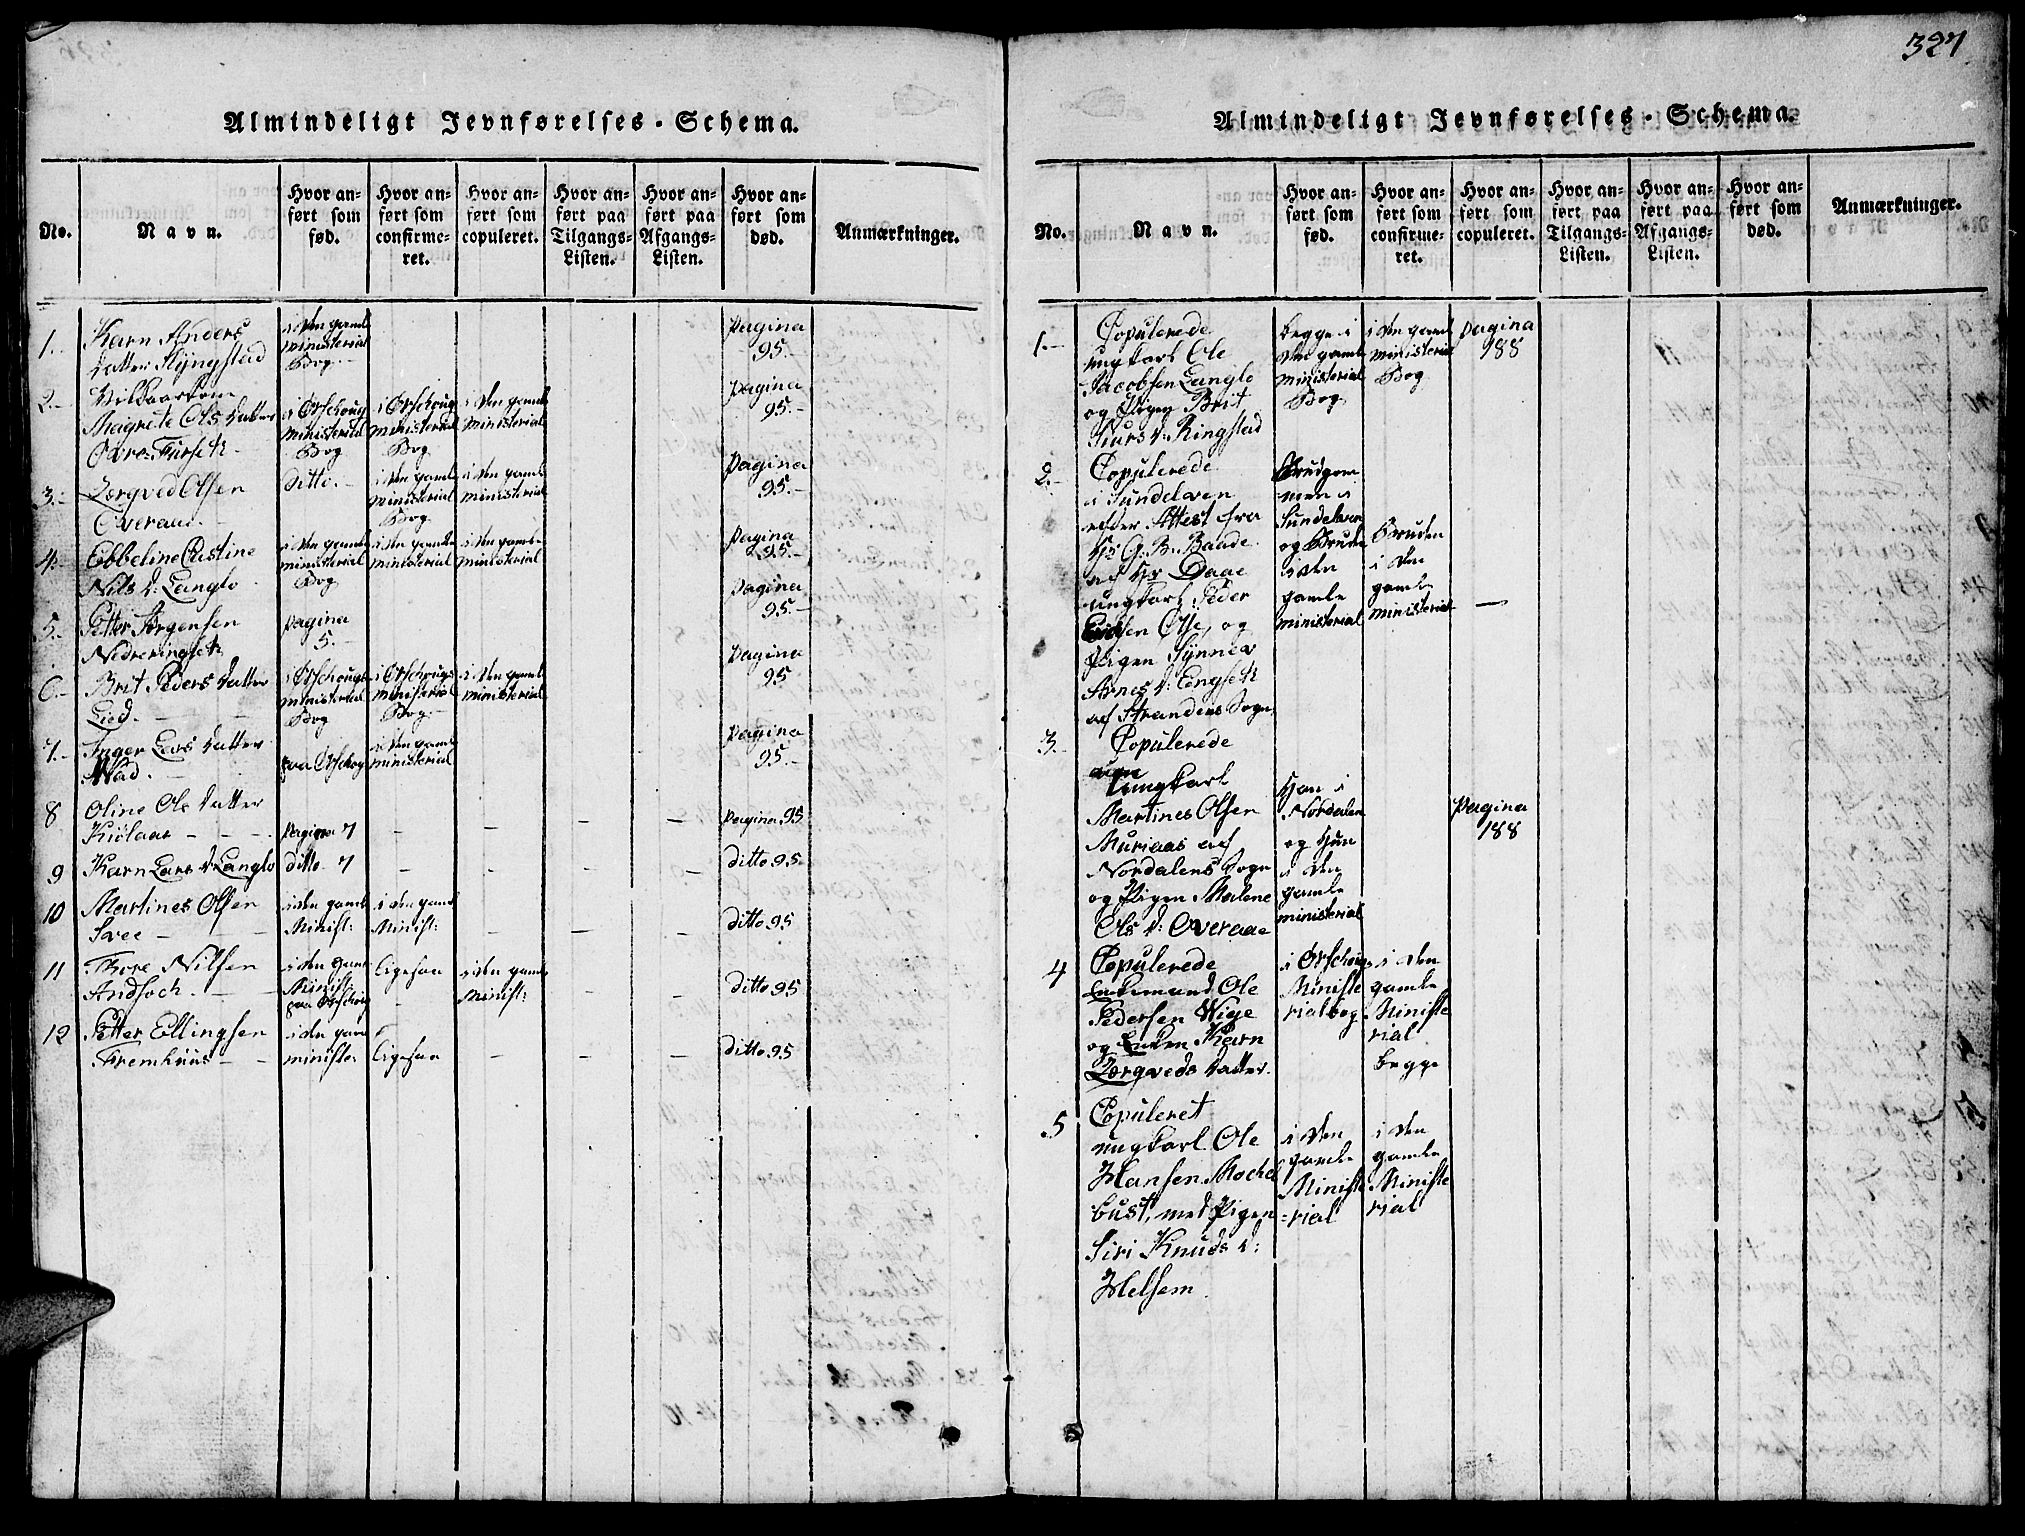 327.
Almindeligt Jevnførelses-Schema.
No.
Navn.
Hvor anført som fød.
Hvor anført som confirmeret.
Hvor anført som copuleret.
Hvor anført paa Tilgangs-Listen.
Hvor anført paa Afgangs-Listen.
Hvor anført som død.
Anmærkninger.
1.
Karn Anders
datter Slyngstad
i den gamle
ministerial
Bog.
Pagina
95.
2.
Magrete Ols datter
Øvre-Furseth
i Ørschoug
ministerial
Bog
i Ørschoug
ministerial
Bog
i den gamle
ministerial
Pagina
95.
3.
Zorgved Olsen
Overaae.
Ditto.
i den gamle
ministerial
Bog
i den gamle
ministerial
Pagina
95.
4.
Ebbeline Cristine
Nils d: Langlo
i den gamle
ministerial
Bog
i den gamle
ministerial
i den gamle
ministerial
Pagina
95.
5.
Petter Jørgensen
Nedreringseth
Pagina
5.
Pagina
95.
6.
Brit Peders datter
Lied.
i Ørschougs
ministerial
Bog
i Ørschougs
ministerial
Bog.
i den gamle
ministerial
Pagina
95
7.
Inger Lars datter
Wad.
paa Ørschog
i den gamle
ministerial
Pagina
95.
8
Oline Ole datter
Kiølaas
Pagina 7
Pagina 95
9
Karn Lars d. Langlo
ditto 7
ditto 95
10
Martines Olsen
Svee
i den gamle
Minist:
i den gamle
Minist:
ditto 95
11
Thore Nilsen
Andsoch.
i den gamle
Minist:
paa Ørschoug
ligesaa
i den gamle
Minist:
ditto 95
12
Petter Ellingsen
Fremhuus
i den gamle
ministe:
ligesaa
ditto 95
Almindeligt Jevnførelses-Schema.
No.
Navn.
Hvor anført som fød.
Hvor anført som confirmeret.
Hvor anført som copuleret.
Hvor anført paa Tilgangs-Listen.
Hvor anført paa Afgangs-Listen.
Hvor anført som død.
Anmærkninger.
1.
Copulerede
ungkarl Ole
Jacobsen Langlo
og Pigen Brit
Siurs d: Ringstad
begge i
den gamle
ministerial
Bog
i den gamle
ministerial
Bog
Pagina
188
2.
Copulerede
i Sundelven
efter Attest fra
Hr G. B. Baade
af Hr Daae
ungkarl Peder
Olse, og
Pigen Synnev
Arnes d: Engseth
af Strandens Sogn
Brudgom
men i
Sundelven
og Bruden
i den
gamle
ministerial
Bruden
i den
gamle
ministerial
3.
Copulerede
ungkarl
Martines Olsen
Muriaas af
Nordalens Sogn
og Pigen Malene
Ols d: Overaae
Han i
Nordalen
og Hun
i den
gamle
ministerial
Pagina
188
4
Copulerede
Enkemand Ole
Pedersen Wige
og Enken Karn
Zorgveds datter.
i Ørschougs
Ministe
rialbog
i den
gamle
Ministe
rial
begge
5
Copuleret
ungkarl Ole
Hansen Mochel
bust, med Pigen
Siri Knuds d:
Helsem.
i den
gamle
Ministe
=rial
i den
gamle
Ministe
rial